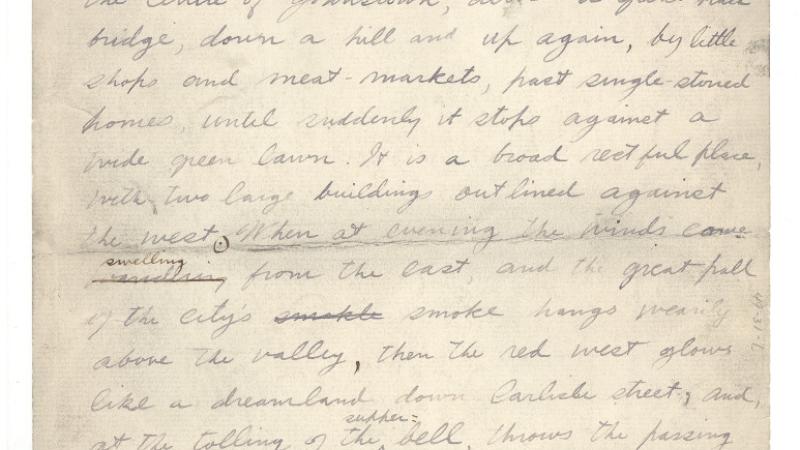 the centre of Johnstown, down a great black
bridge, down a hill and up again, by little
shops and meat-markets, past single-storied
homes, until suddenly it stops against a
wide green lawn. It is a broad restful place,
with two large buildings outlined against
the west. When at evening the winds come
swelling
from the east, and the great pall
of the city's smokle smoke hangs wearily
above the valley, then the red west glows
like a dreamland down Carlisle street, and,
supper-
at the tolling of the bell, throws the passing